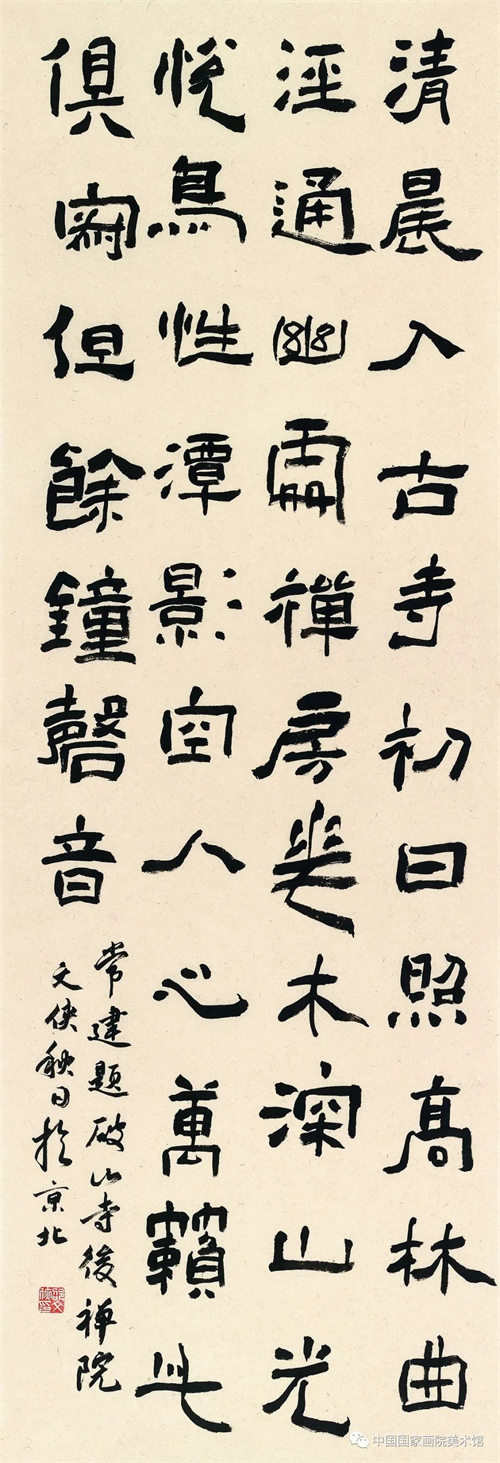 清晨入古寺初日照高林曲
涇通幽處禪房花木深山光
悅鳥性潭影空人心萬籟此
俱寂但餘鐘磬音
常建題破山寺後禪院
文俠秋日於京北
中国国家画院美术馆